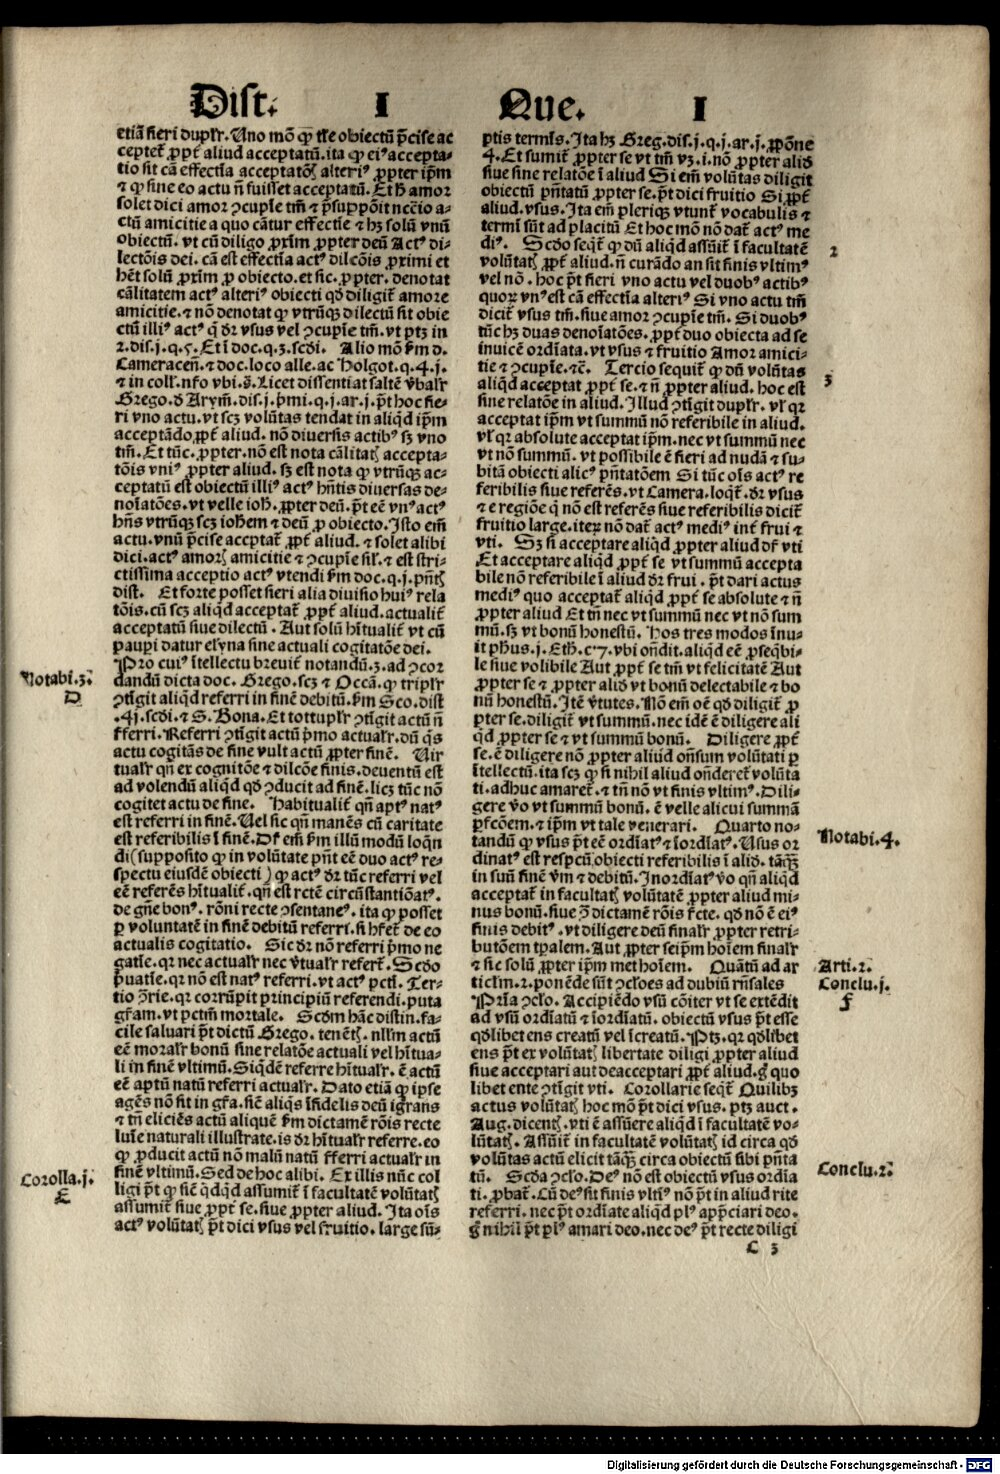 Dist. I Que. I
etiā fieri duplr̄. Uno mō ꝙ tłe obiectū p̄cise ac
ceptet̄ ꝓpt̄ aliud acceptatū. ita ꝙ eiꝰ accepta-
tio sit cā effectīa acceptatōꝭ alteriꝰ ꝓpter ip̄m
⁊ ꝙ sine eo actu n̄ fuisset acceptatū. Et h̄ amor
solet dici amor ꝯcupīe tm̄ ⁊ p̄suppōit nccīo a-
ctū amicitie a quo cātur effectīe ⁊ hꝫ solū vnū
obiectū. vt cū diligo ꝓxim̄ ꝓpter deū Actꝰ di-
lectōis dei. cā est effectīa actꝰ dilcōis ꝓximi et
hēt solū ꝓxim̄ ꝓ obiecto. et sic. ꝓpter. denotat
cālitatem actꝰ alteriꝰ obiecti qd̄ diligit̄ amore
amicitie. ⁊ nō denotat ꝙ vtrūqꝫ dilectū sit obie
ctū illiꝰ actꝰ q̄ dr̄ vsus vel ꝯcupīe tm̄. vt ptꝫ in
2. dis. j. q. 5. Et ī doc. q. 3. scdi. Alio mō ẜm d.
Cameraceñ. ⁊ doc. loco alle. ac Holgot. q. 4. j.
⁊ in coll. nr̄o vbi .s̄. Licet dissentiat saltē v̄balr̄
Grego. d̄ Arym̄. dis. j. p̄mi. q. j. ar. j. p̄t hoc fie-
ri vno actu. vt scꝫ volūtas tendat in aliqd̄ ip̄m
acceptādo ꝓpt̄ aliud. nō diuersis actibꝰ sꝫ vno
tm̄. Et tūc. ꝓpter. nō est nota cālitatꝭ accepta-
tōis vniꝰ ꝓpter aliud. sꝫ est nota ꝙ vtrūqꝫ ac-
ceptatū est obiectū illiꝰ actꝰ hn̄tis diuersas de-
noīatōes. vt velle ioh̄. ꝓpter deū. p̄t eē vnꝰ actꝰ
hn̄s vtrūqꝫ scꝫ ioh̄em ⁊ deū ꝓ obiecto. Isto em̄
actu. vnū p̄cise accptat̄ ꝓpt̄ aliud. ⁊ solet alibi
dici. actꝰ amorꝭ amicitie ⁊ ꝯcupīe sil̄. ⁊ est stri-
ctissima acceptio actꝰ vtendi ẜm doc. q. j. pn̄tꝭ
dist. Et forte posset fieri alia diuisio huiꝰ rela
tōis. cū scꝫ aliqd̄ acceptat̄ ꝓpt̄ aliud. actualit̄
acceptatū siue dilectū. Aut solū hītualit̄ vt cū
pauꝑi datur elyna sine actuali cogitatōe dei.
Pro cuiꝰ ītellectu breuit̄ notandū. 3. ad ꝯcor
dandū dicta doc. Grego. scꝫ ⁊ Occā. ꝙ triplr̄
ꝯtīgit aliqd̄ referri in finē debitū. ẜm Sco. dist
.41. scdi. ⁊ S. Bona. Et tottuplr̄ ꝯtīgit actū n̄
r̄ferri. Referri ꝯtīgit actū p̄mo actualr̄. dū q̄s
actu cogitās de fine vult actū ꝓpter finē. Uir
tualr̄ qn̄ ex cognitōe ⁊ dilcōe finis. deuentū est
ad volendū aliqd̄ qd̄ ꝯducit ad finē. licꝫ tūc nō
cogitet actu de fine. Habitualit̄ qn̄ aptꝰ natꝰ
est referri in finē. Uel sic qn̄ manēs cū caritate
est referibilis ī finē. Dr̄ em̄ ẜm illū modū loqn̄
di (supposito ꝙ in volūtate pn̄t eē duo actꝰ re-
spectu eiusdē obiecti) ꝙ actꝰ dr̄ tūc referri vel
eē referēs hītualit̄. qn̄ est rctē circūstantiōatꝰ.
de gn̄e bonꝰ. rōni recte ꝯsentaneꝰ. ita ꝙ posset
ꝑ voluntatē in finē debitū referri. si hr̄et̄ de eo
actualis cogitatio. Sic dr̄ nō referri p̄mo ne
gatīe. qr nec actualr̄ nec v̄tualr̄ refert̄. Scdo
p̄uatīe. qr nō est natꝰ referri. vt actꝰ pctī. Ter-
tio ꝯ̄rie. qr corrūpit principiū referendi. puta
gr̄am. vt pctm̄ mortale. Scdm̄ hāc distin. fa-
cile saluari p̄t dictū Grego. tenētꝭ. nllm̄ actū
eē moralr̄ bonū sine relatōe actuali vel hītua-
li in finē vltimū. Siqdē referre hītualr̄. ē actū
eē aptū natū referri actualr̄. Dato etiā ꝙ ipse
agēs nō sit in gr̄a. sic̄ aliqs īfidelis deū igrans
⁊ tn̄ eliciēs actū aliquē ẜm dictamē rōis recte
luīe naturali illustrate. is dr̄ hītualr̄ referre. eo
ꝙ ꝓducit actū nō malū natū r̄ferri actualr̄ in
finē vltimū. Sed de hoc alibi. Ex illis nūc col
ligi p̄t ꝙ sic̄ qd̄qd̄ assumit̄ ī facultatē volūtatꝭ
assumit̄ siue ꝓpt̄ se. siue ꝓpter aliud. Ita oīs
actꝰ volūtatꝭ p̄t dici vsus vel fruitio. large sū-
Notabi. 3.
D
Corolla. j.
E
ptis termīs. Ita hꝫ Greg. dis. j. q. j. ar. j. ꝓpōne
4. Et sumit̄ ꝓpter se vt tm̄ vꝫ. i. nō ꝓpter alid̄
siue sine relatōe ī aliud Si em̄ volūtas diligit
obiectū pn̄tatū ꝓpter se. p̄t dici fruitio Si ꝓpt̄
aliud. vsus. Ita em̄ pleriqꝫ vtunt̄ vocabulis ⁊
termī sūt ad placitū Et hoc mō nō dat̄ actꝰ me
diꝰ. Scdo seqt̄ ꝙ dū aliqd̄ assūit̄ ī facultatē
volūtatꝭ ꝓpt̄ aliud. n̄ curādo an sit finis vltimꝰ
vel nō. hoc p̄t fieri vno actu vel duobꝰ actibꝰ
quoꝝ vnꝰ est cā effectīa alteriꝰ Si vno actu tm̄
dicit̄ vsus tm̄. siue amor ꝯcupīe tm̄. Si duobꝰ
tūc hꝫ duas denoīatōes. ꝓpt̄ duo obiecta ad se
īnuicē ordīata. vt vsus ⁊ fruitio Amor amici-
tie ⁊ ꝯcupīe. ⁊c̄. Tercio sequit̄ ꝙ dū volūtas
aliqd̄ acceptat ꝓpt̄ se. ⁊ n̄ ꝓpter aliud. hoc est
sine relatōe in aliud. Illud ꝯtīgit duplr̄. vl̄ qr
acceptat ip̄m vt summū nō referibile in aliud.
vl̄ qr absolute acceptat ip̄m. nec vt summū nec
vt nō summū. vt possibile ē fieri ad nudā ⁊ su-
bitā obiecti alicꝰ pn̄tatōem Si tūc oīs actꝰ re
feribilis siue referēs. vt Camera. loqt̄. dr̄ vsus
⁊ e regiōe q̄ nō est referēs siue referibilis dicit̄
fruitio large. iteꝝ nō dat̄ actꝰ mediꝰ int̄ frui ⁊
vti. Sꝫ si acceptare aliqd̄ ꝓpter aliud dr̄ vti
Et acceptare aliqd̄ ꝓpt̄ se vt summū accepta
bile nō referibile ī aliud dr̄ frui. p̄t dari actus
mediꝰ quo acceptat̄ aliqd̄ ꝓpt̄ se absolute ⁊ n̄
ꝓpter aliud Et tn̄ nec vt summū nec vt nō sum
mū. sꝫ vt bonū honestū. Hos tres modos īnu-
it ph̄us. j. Eth̄. cꝰ7. vbi on̄dit. aliqd̄ eē ꝓseqbi-
le siue volibile Aut ꝓpt̄ se tm̄ vt felicitatē Aut
ꝓpter se ⁊ ꝓpter alid̄ vt bonū delectabile ⁊ bo
nū honestū. Itē v̄tutes. Nō em̄ oē qd̄ diligit̄ ꝓ
pter se. diligit̄ vt summū. nec idē ē diligere ali
qd̄ ꝓpter se ⁊ vt summū bonū. Diligere ꝓpt̄
se. ē diligere nō ꝓpter aliud on̄sum volūtati ꝑ
ītellectū. ita scꝫ ꝙ si nihil aliud on̄deret̄ volūta
ti. adhuc amaret̄. ⁊ tn̄ nō vt finis vltimꝰ. Dili-
gere v̄o vt summū bonū. ē velle alicui summā
ꝑfcōem. ⁊ ip̄m vt tale venerari. Quarto no-
tandū ꝙ vsus p̄t eē ordīatꝰ ⁊ īordīatꝰ. Usus or
dinatꝰ est respcū obiecti referibilis ī alid̄. tāqꝫ
in suū finē v̄m ⁊ debitū. Inordīatꝰ v̄o qn̄ aliqd̄
acceptat̄ in facultatꝭ volūtatē ꝓpter aliud mi-
nus bonū. siue ꝯ̄ dictamē rōis r̄cte. qd̄ nō ē eiꝰ
finis debitꝰ. vt diligere deū finalr̄ ꝓpter retri-
butōem tꝑalem. Aut ꝓpter seip̄m hoīem finalr̄
⁊ sic̄ solū ꝓpter ip̄m met hoīem. Quātū ad ar
ticlm̄. 2. ponēde sūt ꝯcl̄oes ad dubiū rn̄sales
Prīa ꝯcl̄o. Accipiēdo vsū cōiter vt se extēdit
ad vsū ordīatū ⁊ īordīatū. obiectū vsus p̄t esse
qd̄libet ens creatū vel īcreatū. Ptꝫ. qr qd̄libet
ens p̄t ex volūtatꝭ libertate diligi ꝓpter aliud
siue acceptari aut deacceptari ꝓpt̄ aliud. g̊ quo
libet ente ꝯtīgit vti. Corollarie seqt̄ Quilibꝫ
actus volūtatꝭ hoc mō p̄t dici vsus. ptꝫ auct.
Aug. dicentꝭ. vti ē assūere aliqd̄ ī facultatē vo-
lūtatꝭ. Assūit̄ in facultatē volūtatꝭ id circa qd̄
voluntas actū elicit tāqꝫ circa obiectū sibi pn̄ta
tū. Scda ꝯcl̄o. Deꝰ nō est obiectū vsus ordīa
ti. ꝓbat̄. Cū deꝰ sit finis vltīꝰ nō p̄t in aliud rite
referri. nec p̄t ordīate aliqd̄ plꝰ app̄ciari deo.
g̊ nihil p̄t plꝰ amari deo. nec deꝰ p̄t recte diligi
C 3
2
3
Notabi. 4.
Arti. 2.
Conclu. j.
F
Conclu. 2.
Digitalisierung gefördert durch die Deutsche Forschungsgemeinschaft - DFG